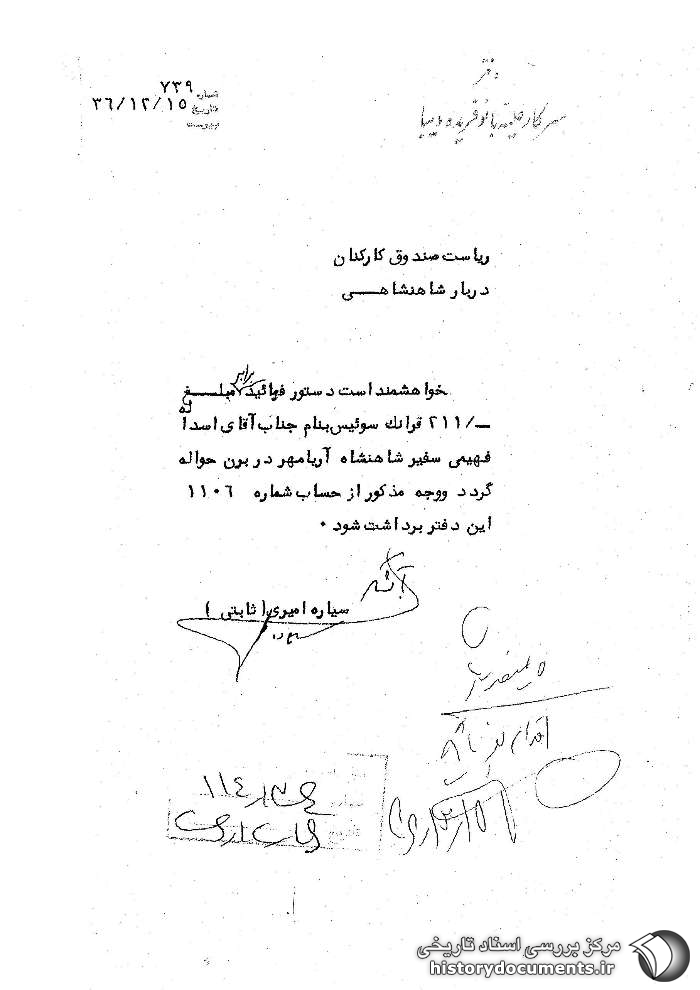 دفتر
سرکار علیه بانو فریده دیبا
شماره ٧٣٩
تاریخ ٣٦/١٢/١٥
پیوست
ریاست صندوق کارکنان
دربار شاهنشاهـــی
خواهشمند است دستور فرمائید برابر مبلــــغ
ــ/٢١١ فرانك سوئیس بنام جناب آقای اسداله
فهیمی سفیر شاهنشاه آریامهر در برن حواله
گردد ووجه مذکور از حساب شماره ١١٠٦
این دفتر برداشت شود ٠
سیاره امیری (ثابتی)
اقدام
١١٤
مرکز بررسی اسناد تاریخی
historydocuments.ir